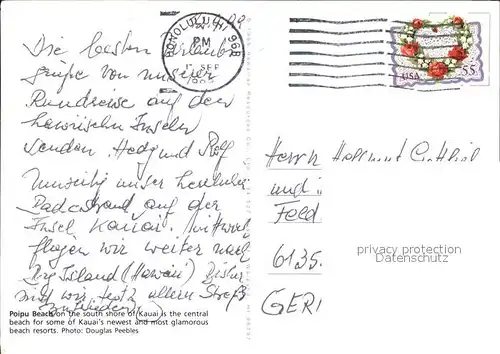 HONOLULU HI 968
PM
1 SEP
USA
55
Die besten Urlaubs
grüße von unserer
Rundreise auf den
hawaiischen Inseln
senden Hedy und Rolf
Umseitig unser herrlicher
Badestrand auf der
Insel Kauai. Mittwoch
fliegen wir weiter nach
Big Island (Hawaii) Bisher
sind wir trotz allem Streß
zufrieden
Herrn Hellmut
und
Feld
6135
GER
privacy protection
Datenschutz
Poipu Beach on the south shore of Kauai is the central
beach for some of Kauai's newest and most glamorous
beach resorts. Photo: Douglas Peebles